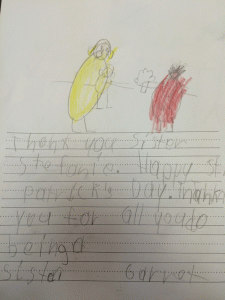 Thank you Sister
Stefania. Happy St
Patricks Day. Thank
you for all you do
being a
Sister Garret